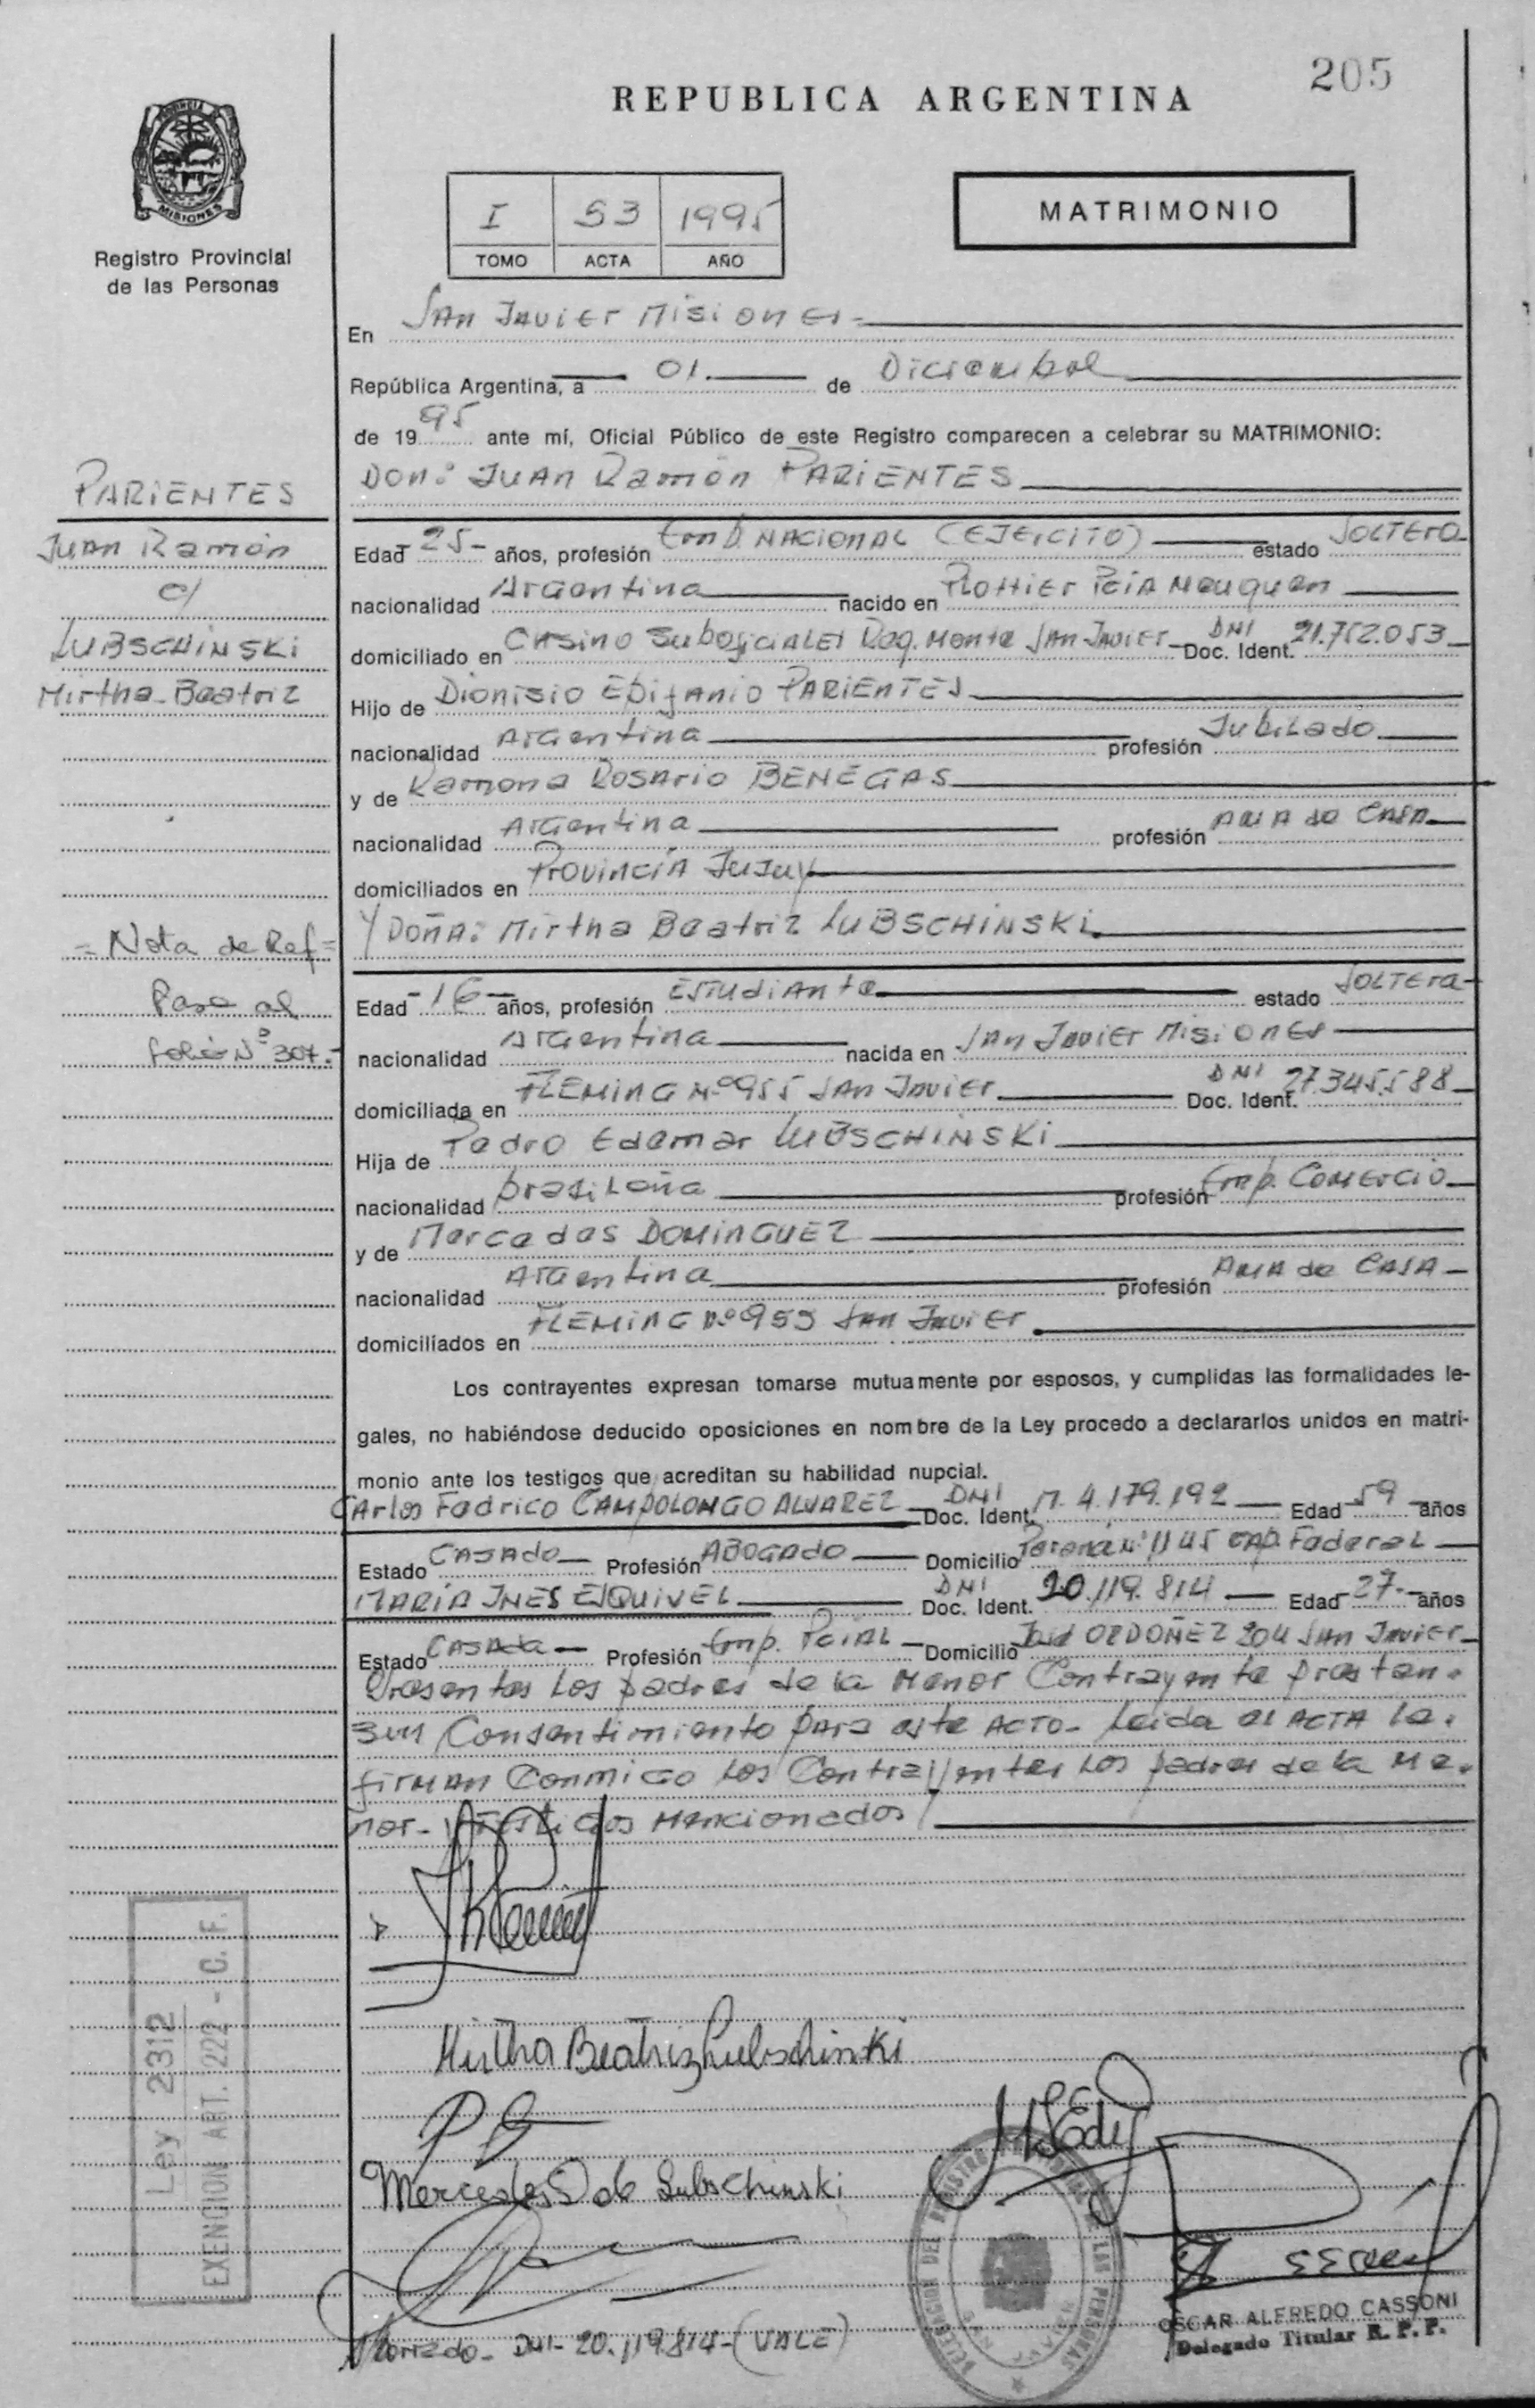 205
REPUBLICA ARGENTINA
MISIONES
Registro Provincial
de las Personas
I 53 1995
TOMO ACTA AÑO
MATRIMONIO
En SAN JAVIER MISIONES
República Argentina, a 01 de Diciembre
de 1995 ante mí, Oficial Público de este Registro comparecen a celebrar su MATRIMONIO:
PARIENTES
Juan Ramón
c/
LUBSCHINSKI
Mirtha Beatriz
= Nota de Ref =
Pasa al
folio Nº 307.-
DON: JUAN Ramón PARIENTES
Edad -25- años, profesión Emp. NACIONAL (EJERCITO) estado SOLTERO
nacionalidad Argentina nacido en Plottier Pcia Neuquen
domiciliado en CASINO Suboficiales Reg. Monte SAN JAVIER - Doc. Ident. DNI 21.752.053
Hijo de Dionisio Epifanio PARIENTES
nacionalidad Argentina profesión Jubilado
y de Ramona ROSARIO BENEGAS
nacionalidad Argentina profesión AMA de CASA
domiciliados en PROVINCIA JUJUY
Y DOÑA: Mirtha Beatriz LUBSCHINSKI
Edad -16- años, profesión ESTUDIANTE estado SOLTERA
nacionalidad Argentina nacida en SAN JAVIER MISIONES
domiciliada en FLEMING Nº 955 SAN JAVIER Doc. Ident. DNI 27.345.588
Hija de Pedro Edemar LUBSCHINSKI
nacionalidad brasileña profesión Emp. COMERCIO
y de Mercedes DOMINGUEZ
nacionalidad Argentina profesión AMA de CASA
domiciliados en FLEMING Nº 955 SAN JAVIER
Los contrayentes expresan tomarse mutuamente por esposos, y cumplidas las formalidades le-
gales, no habiéndose deducido oposiciones en nombre de la Ley procedo a declararlos unidos en matri-
monio ante los testigos que acreditan su habilidad nupcial.
CARLOS Fadrico CAMPOLONGO ALVAREZ Doc. Ident. DNI M. 4.179.192 Edad 59 años
Estado CASADO Profesión ABOGADO Domicilio Paraná Nº 1145 CAP. Federal
MARÍA INES ESQUIVEL Doc. Ident. DNI 20.119.814 Edad 27 años
Estado CASADA Profesión Emp. Pcial Domicilio José ORDOÑEZ 204 SAN JAVIER
Presentes los padres de la Menor Contrayente prestan
sus Consentimiento para este ACTO- Leida el ACTA la
firman Conmigo los Contrayentes los padres de la Me-
nor- y testigos mencionados
Mirtha Beatriz Lubschinski
Mercedes D de Lubschinski
Ley 2312
EXENCION ART. 222 - C. F.
OSCAR ALFREDO CASSONI
Delegado Titular R. P. P.
DNI- 20.119.814-(VALE)